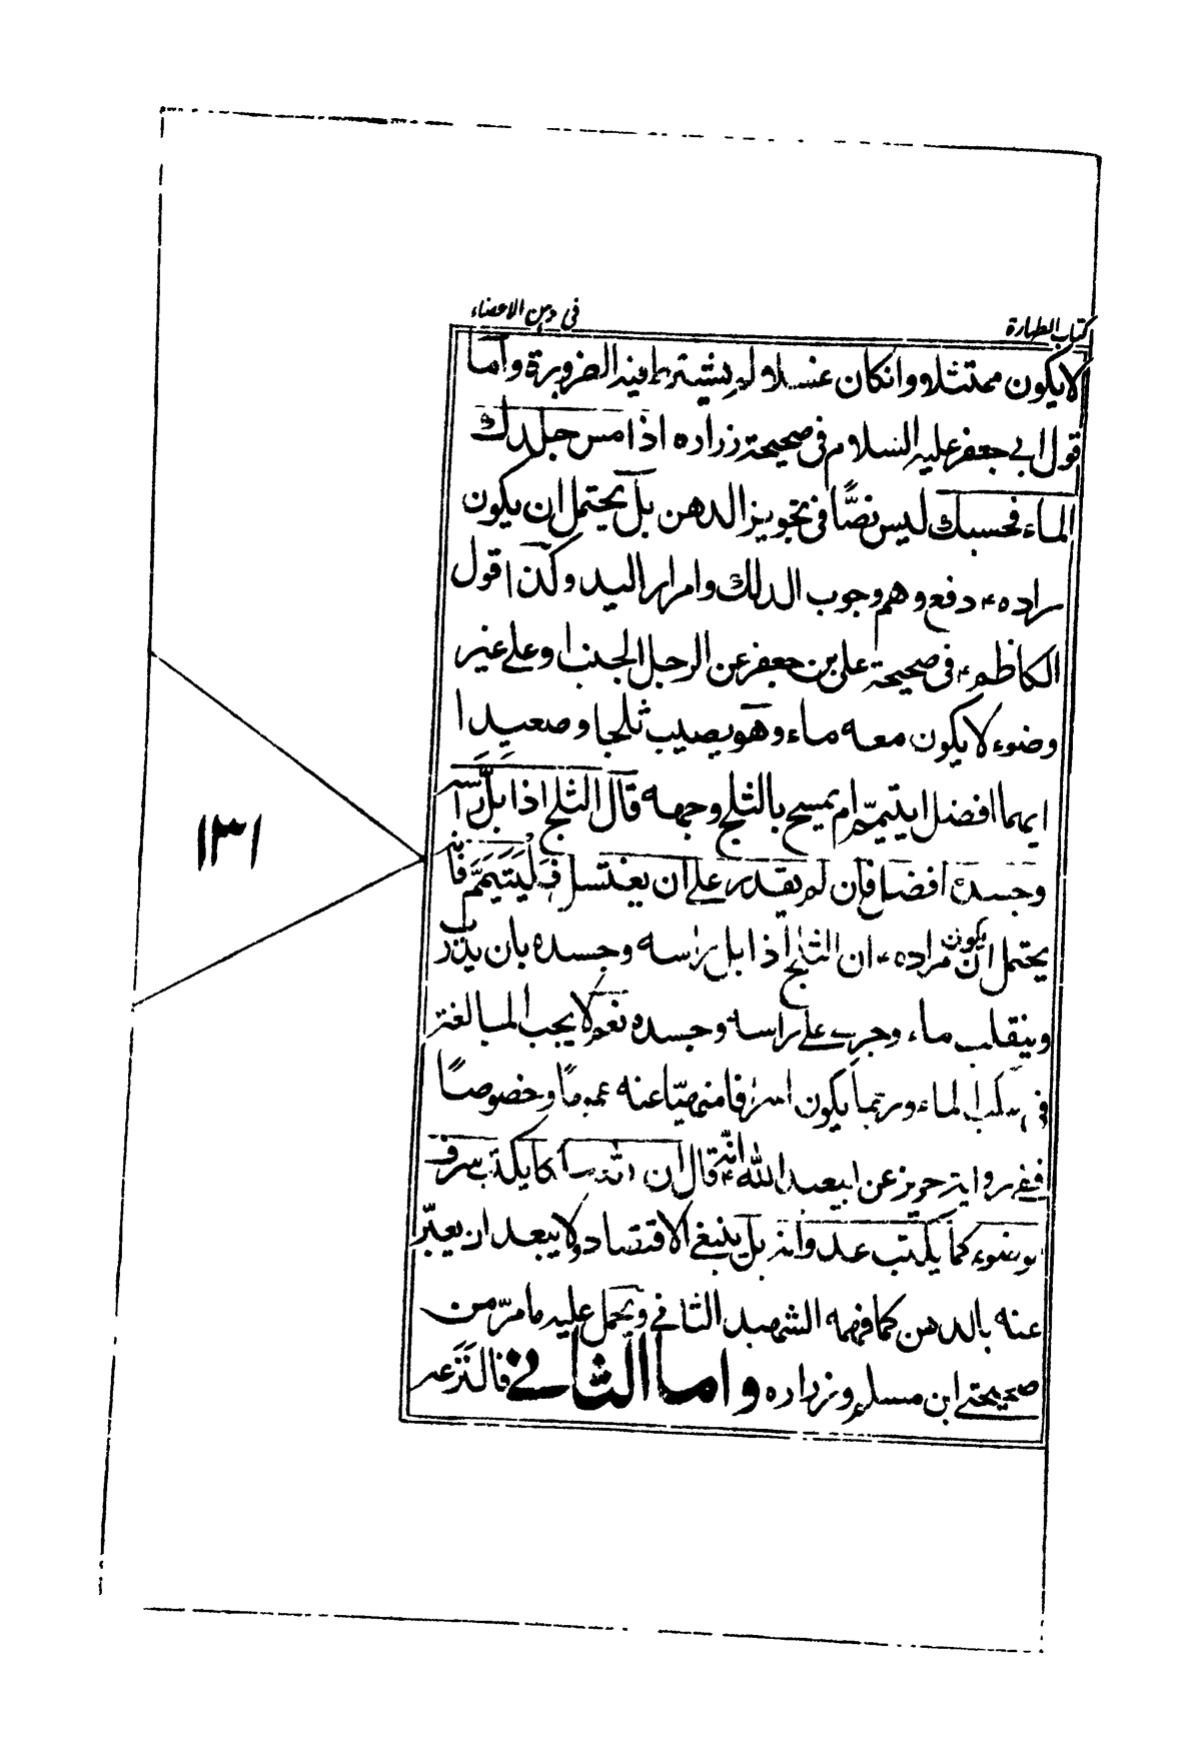 كتاب الطهارة
في دهن الاعضاء
لا يكون ممتثلا وانكان غسلا ولم يشترط فيه الضرورة واما
قول ابي جعفر عليه السلام في صحيحة زراره اذا مس جلدك
الماء فحسبك ليس نصًّا في تجويز الدهن بل يحتمل ان يكون
مراده ع دفع وهم وجوب الدلك وامرار اليد وكذا قول
الكاظم ع في صحيحة على بن جعفر عن الرجل الجنب او على غير
وضوء لا يكون معه ماء وهو يصيب ثلجا وصعيدا
ايهما افضل ايتيمّم ام يمسح بالثلج وجهه قال الثلج اذا بلّ راسه
وجسده افضل فان لم يقدر على ان يغتسل به فليتيمّم فانّه
يحتمل ان يكون مراده ع ان الثلج اذا بل راسه وجسده بان يذوب
وينقلب ماء وجرى على راسه وجسده نعم لا يجب المبالغة
في سكب الماء وربما يكون اسرافا منهيّا عنه عموما وخصوصًا
ففي رواية حريز عن ابيعبد الله ع انّه قال ان لله ملكا يكتب سرف
الوضوء كما يكتب عدوانه بل ينبغي الاقتصاد ولا يبعد ان يعبّر
عنه بالدهن كما فهمه الشهيد الثاني ويحمل عليه ما مرّ من
صحيحتى ابن مسلم وزراره واما الثاني فالنزعه
١٣١